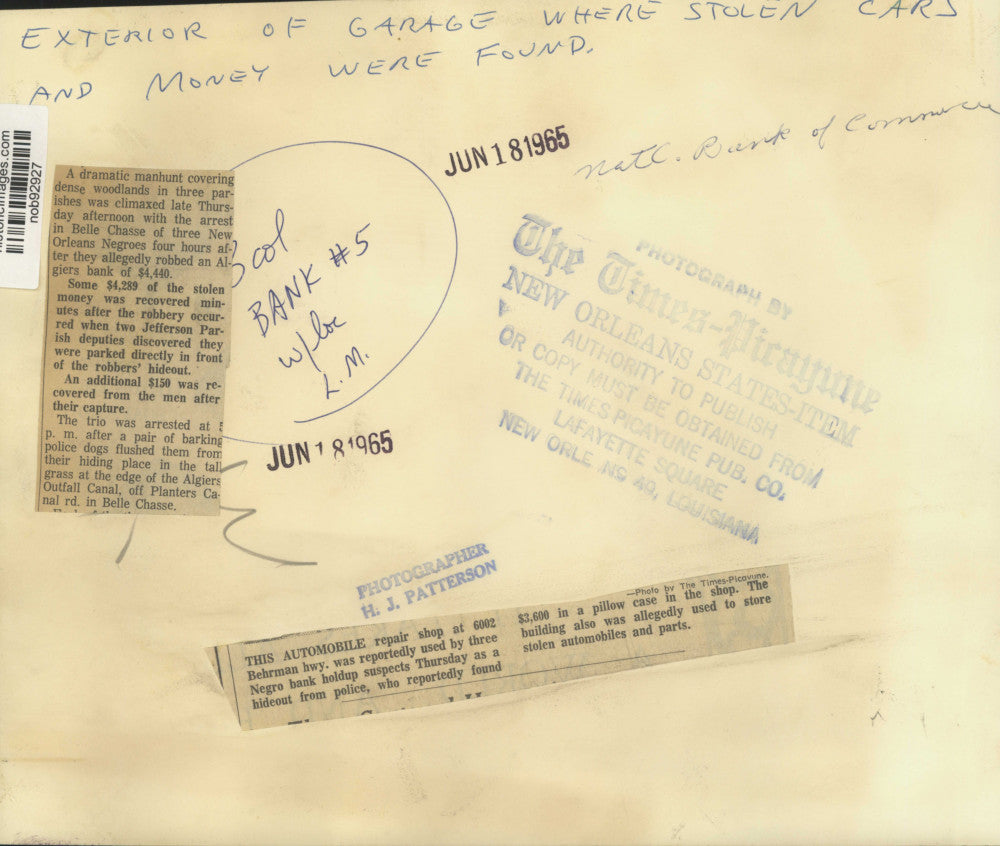 EXTERIOR OF GARAGE WHERE STOLEN CARS
AND MONEY WERE FOUND.
JUN 18 1965
Natl. Bank of Commerce
historicimages.com
nob92927
A dramatic manhunt covering
dense woodlands in three par-
ishes was climaxed late Thurs-
day afternoon with the arrest
in Belle Chasse of three New
Orleans Negroes four hours af-
ter they allegedly robbed an Al-
giers bank of $4,440.
Some $4,289 of the stolen
money was recovered min-
utes after the robbery occur-
red when two Jefferson Par-
ish deputies discovered they
were parked directly in front
of the robbers' hideout.
An additional $150 was re-
covered from the men after
their capture.
The trio was arrested at 5
p. m. after a pair of barking
police dogs flushed them from
their hiding place in the tall
grass at the edge of the Algiers
Outfall Canal, off Planters Ca-
nal rd. in Belle Chasse.
3 col
BANK #5
w/loc
L.M.
JUN 18 1965
PHOTOGRAPH BY
The Times-Picayune
NEW ORLEANS STATES-ITEM
AUTHORITY TO PUBLISH
OR COPY MUST BE OBTAINED FROM
THE TIMES PICAYUNE PUB. CO.
LAFAYETTE SQUARE
NEW ORLE NS 40, LOUISIANA
PHOTOGRAPHER
H. J. PATTERSON
—Photo by The Times-Picayune.
THIS AUTOMOBILE repair shop at 6002
Behrman hwy. was reportedly used by three
Negro bank holdup suspects Thursday as a
hideout from police, who reportedly found
$3,600 in a pillow case in the shop. The
building also was allegedly used to store
stolen automobiles and parts.